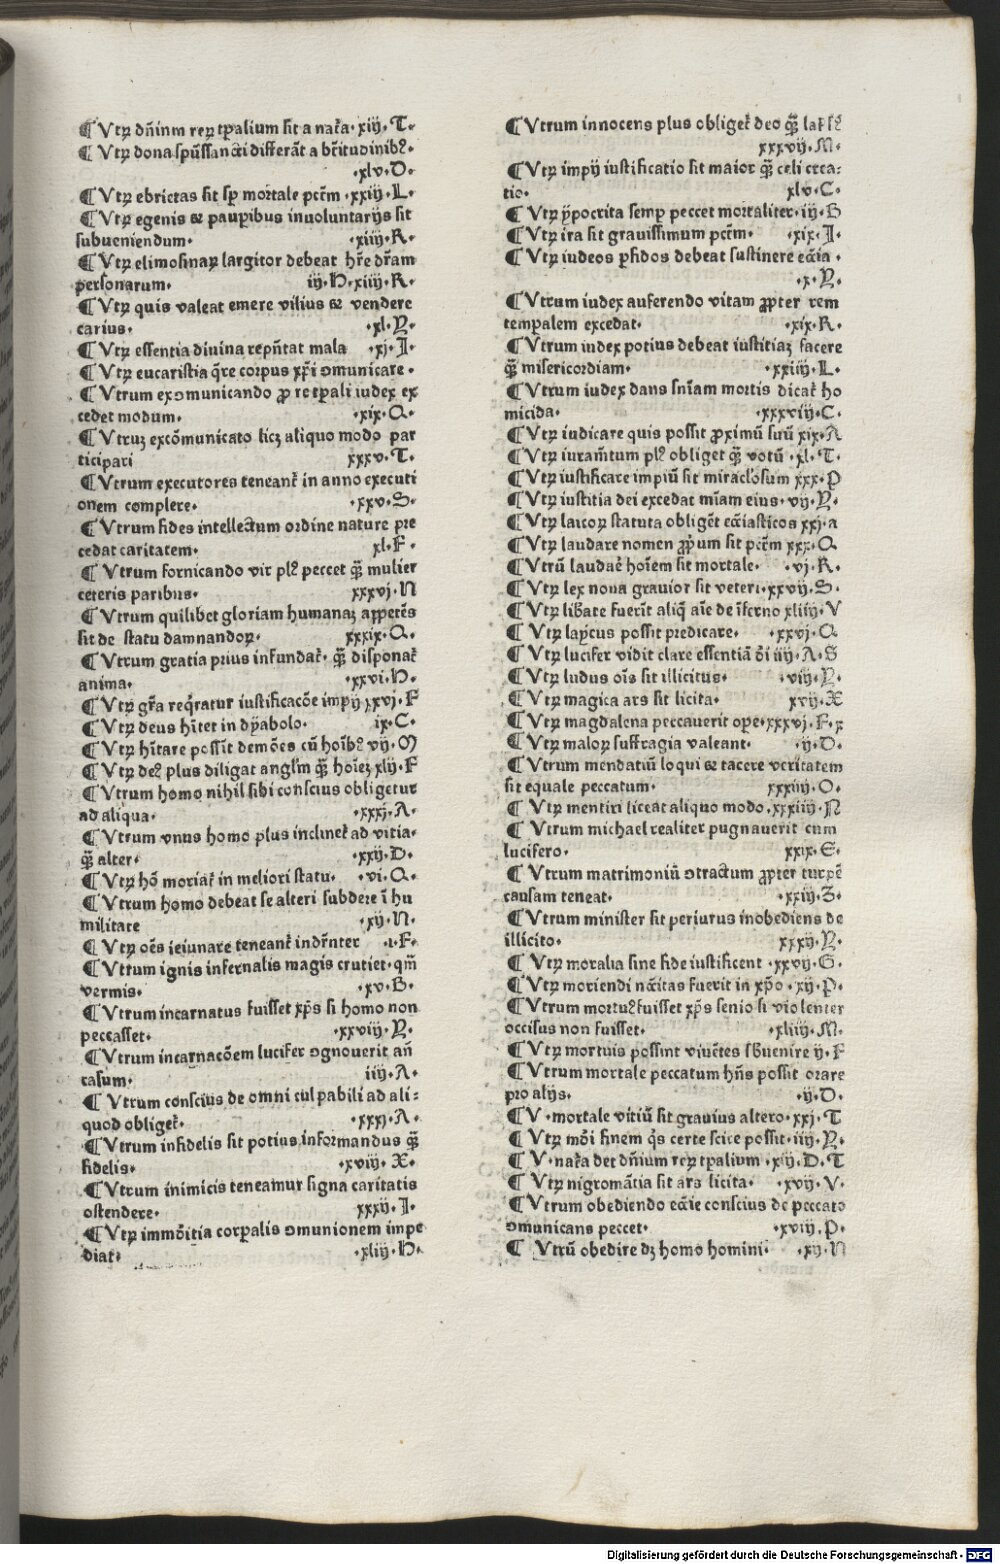 ¶ Vtꝝ dn̄inm reꝝ tꝑalium sit a nať̄a· xiij· T·
¶ Vtꝝ dona spūssancti differāt a br̄itudinibꝰ·
·xlv·D·
¶ Vtꝝ ebrietas sit sꝑ mortale pctm̄ ·xxiij·L·
¶ Vtꝝ egenis ⁊ pauꝑibus inuoluntarijs sit
subueniendum· ·xiiij·R·
¶ Vtꝝ elimosinaꝝ largitor debeat hr̄e dr̄am
personarum· iij·H·xiiij·R·
¶ Vtꝝ quis valeat emere vilius ⁊ vendere
carius· ·xl·Y·
¶ Vtꝝ essentia diuina repn̄tat mala ·xj·I·
¶ Vtꝝ eucaristia q̄re corpus xp̄i ꝯmunicare·
¶ Vtrum exꝯmunicando ꝓ re tꝑali iudex ex
cedet modum· ·xix·Q·
¶ Vtruꝫ excōmunicato licꝫ aliquo modo par
ticipari xxxv·T·
¶ Vtrum executores teneant̄ in anno executi
onem complere· ·xxv·S·
¶ Vtrum fides intellectum ordine nature pre
cedat caritatem· xl·F·
¶ Vtrum fornicando vir plꝰ peccet q̄ꝫ mulier
ceteris paribus· xxxvj·N
¶ Vtrum quilibet gloriam humanaꝫ appetēs
sit de statu damnandoꝝ· xxxix·Q·
¶ Vtrum gratia prius infundat̄· q̄ꝫ disponat̄
anima· ·xxvi·H·
¶ Vtꝝ gr̄a req̄ratur iustificacōe impij xxvj·F
¶ Vtꝝ deus hītet in dyabolo· ix·C·
¶ Vtꝝ hītare possīt demōes cū hoībꝰ vij·M
¶ Vtꝝ deꝰ plus diligat angl̄m q̄ꝫ hoīeꝫ xlij·F
¶ Vtrum homo nihil sibi conscius obligetur
ad aliqua· ·xxxj·A·
¶ Vtrum vnus homo plus inclinet̄ ad vitia·
q̄ꝫ alter· ·xxij·D·
¶ Vtꝝ hō moriat̄ in meliori statu· ·vi·Q·
¶ Vtrum homo debeat se alteri subdere ī hu
militare ·xij·N·
¶ Vtꝝ oēs ieiunare teneant̄ indr̄nter ·ı·F·
¶ Vtrum ignis infernalis magis crutiet·qm̄
vermis· ·xv·B·
¶ Vtrum incarnatus fuisset xp̄s si homo non
peccasset· ·xxviij·Y·
¶ Vtrum incarnacōem lucifer ꝯgnouerit an̄
casum· iiij·A·
¶ Vtrum conscius de omni culpabili ad ali⸗
quod obliget̄· ·xxxj·A·
¶ Vtrum infidelis sit potius informandus q̄ꝫ
fidelis· ·xviij·X·
¶ Vtrum inimicis teneamur signa caritatis
ostendere· xxxij·I·
¶ Vtꝝ immōitia corꝑalis ꝯmunionem impe
diat· ·xliij·H·
¶ Vtrum innocens plus obliget̄ deo q̄ꝫ lapsꝰ
xxxvij·M·
¶ Vtꝝ impij iustificatio sit maior q̄ꝫ celi crea⸗
tio· xlv·C·
¶ Vtꝝ ypocrita semꝑ peccet mortaliter·ij·B
¶ Vtꝝ ira sit grauissimum pctm̄· ·xix·I·
¶ Vtꝝ iudeos ꝑfidos debeat sustinere ecc̄ia·
·x·Y·
¶ Vtrum iudex auferendo vitam ꝓpter rem
temꝑalem excedat· ·xix·R·
¶ Vtrum iudex potius debeat iustitiaꝫ facere
q̄ꝫ misericordiam· ·xxiiij·L·
¶ Vtrum iudex dans sn̄iam mortis dicat̄ ho
micida· ·xxxviij·C·
¶ Vtꝝ iudicare quis possit ꝓximū suū xix·A
¶ Vtꝝ iuram̄tum plꝰ obliget q̄ꝫ votū ·xl·T·
¶ Vtꝝ iustificare impiū sit miracl̓osum xxx·P
¶ Vtꝝ iustitia dei excedat mīam eius·vij·Y·
¶ Vtꝝ laicoꝝ statuta obligēt ecc̄iasticos xxj·a
¶ Vtꝝ laudare nomen ꝓpͥum sit pctm̄ xxx·Q
¶ Vtrū laudač hoīem sit mortale· ·vj·R·
¶ Vtꝝ lex noua grauior sit veteri·xxvij·S·
¶ Vtꝝ lib̄ate fuerīt aliq̄ aīe de īferno xliiij·V
¶ Vtꝝ lapsus possit predicare· ·xxvj·Q
¶ Vtꝝ lucifer vidit clare essentiā dī iiij·A·S
¶ Vtꝝ ludus oīs sit illicitus· ·viij·Y·
¶ Vtꝝ magica ars sit licita· xvij·X
¶ Vtꝝ magdalena peccauerit oꝑe·xxxvj·F·z
¶ Vtꝝ maloꝝ suffragia valeant· ·ij·D·
¶ Vtrum mendatiū loqui ⁊ tacere veritatem
sit equale peccatum· xxxiiij·O·
¶ Vtꝝ mentiri liceat aliquo modo·xxxiiij·N
¶ Vtrum michael realiter pugnauerit cum
lucifero· xxix·E·
¶ Vtrum matrimoniū ꝯtractum ꝓpter turpē
causam teneat· ·xxiij·Z·
¶ Vtrum minister sit periurus inobediens de
illicito· xxxij·Y·
¶ Vtꝝ moralia sine fide iustificent ·xxvij·G·
¶ Vtꝝ moriendi nc̄citas fuerit in xp̄o ·xij·P·
¶ Vtrum mortuꝰ fuisset xp̄s senio si violenter
occisus non fuisset· ·xliiij·M·
¶ Vtꝝ mortuis possint viuētes sb̄uenire ij·F
¶ Vtrum mortale peccatum hn̄s possit orare
pro alijs· ·ij·D·
¶ V·mortale vitiū sit grauius altero·xxj·T
¶ Vtꝝ mōi finem q̄s certe scire possit·iiij·Y·
¶ V·nať̄a det dn̄ium reꝝ tꝑalium ·xij·D·T
¶ Vtꝝ nigromātia sit ars licita· ·xvij·V·
¶ Vtrum obediendo ecc̄ie conscius de peccato
ꝯmunicans peccet· ·xviij·P·
¶ Vtrū obedire dꝫ homo homini· ·xij·N
Digitalisierung gefördert durch die Deutsche Forschungsgemeinschaft - DFG